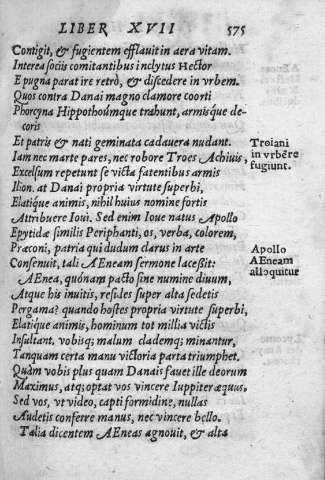 LIBER XVII 575
Contigit, & fugientem efflauit in aera vitam.
Interea sociis comitantibus inclytus Hector
E pugna parat ire retrò, & discedere in vrbem.
Quos contra Danai magno clamore coorti
Phorcyna Hippothoúmque trahunt, armísque de-
coris
Et patris & nati geminata cadauera nudant.
Troiani
in vrbēre
fugiunt.
Iam nec marte pares, nec robore Troes Achiuis,
Excelsum repetunt se victa fatentibus armis
Ilion. at Danai propria virtute superbi,
Elatíque animis, nihil huius nomine fortis
Attribuere Ioui. Sed enim Ioue natus Apollo
Epytidæ similis Periphanti, os, verba, colorem,
Præconi, patria qui dudum clarus in arte
Consenuit, tali AEneam sermone lacessit:
Apollo
AEneam
alloquitur
AEnea, quónam pacto sine numine diuum,
Atque his inuitis, resides super alta sedetis
Pergama? quando hostes propria virtute superbi,
Elatíque animis, hominum tot millia victis
Insultant, vobisq; malum clademq; minantur,
Tanquam certa manu victoria parta triumphet.
Quàm vobis plus quam Danais fauet ille deorum
Maximus, atq; optat vos vincere Iuppiter æquus.
Sed vos, vt video, capti formidine, nullas
Audetis conferre manus, nec vincere bello.
Talia dicentem AEneas agnouit, & alta